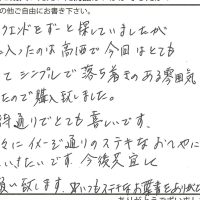 の他ご自由にお書き下さい。
クエンドをずっと探していましたが
入ったのは高価で今回はとても
てシンプルで落ち着きのある雰囲気
たので購入致しました。
通りでとても喜しいです。
々にイメージ通りのステキなおへやに
いきたいです 今後共宜しく
願い致します。 ステキなお葉書をありがと
ありがとうございまし